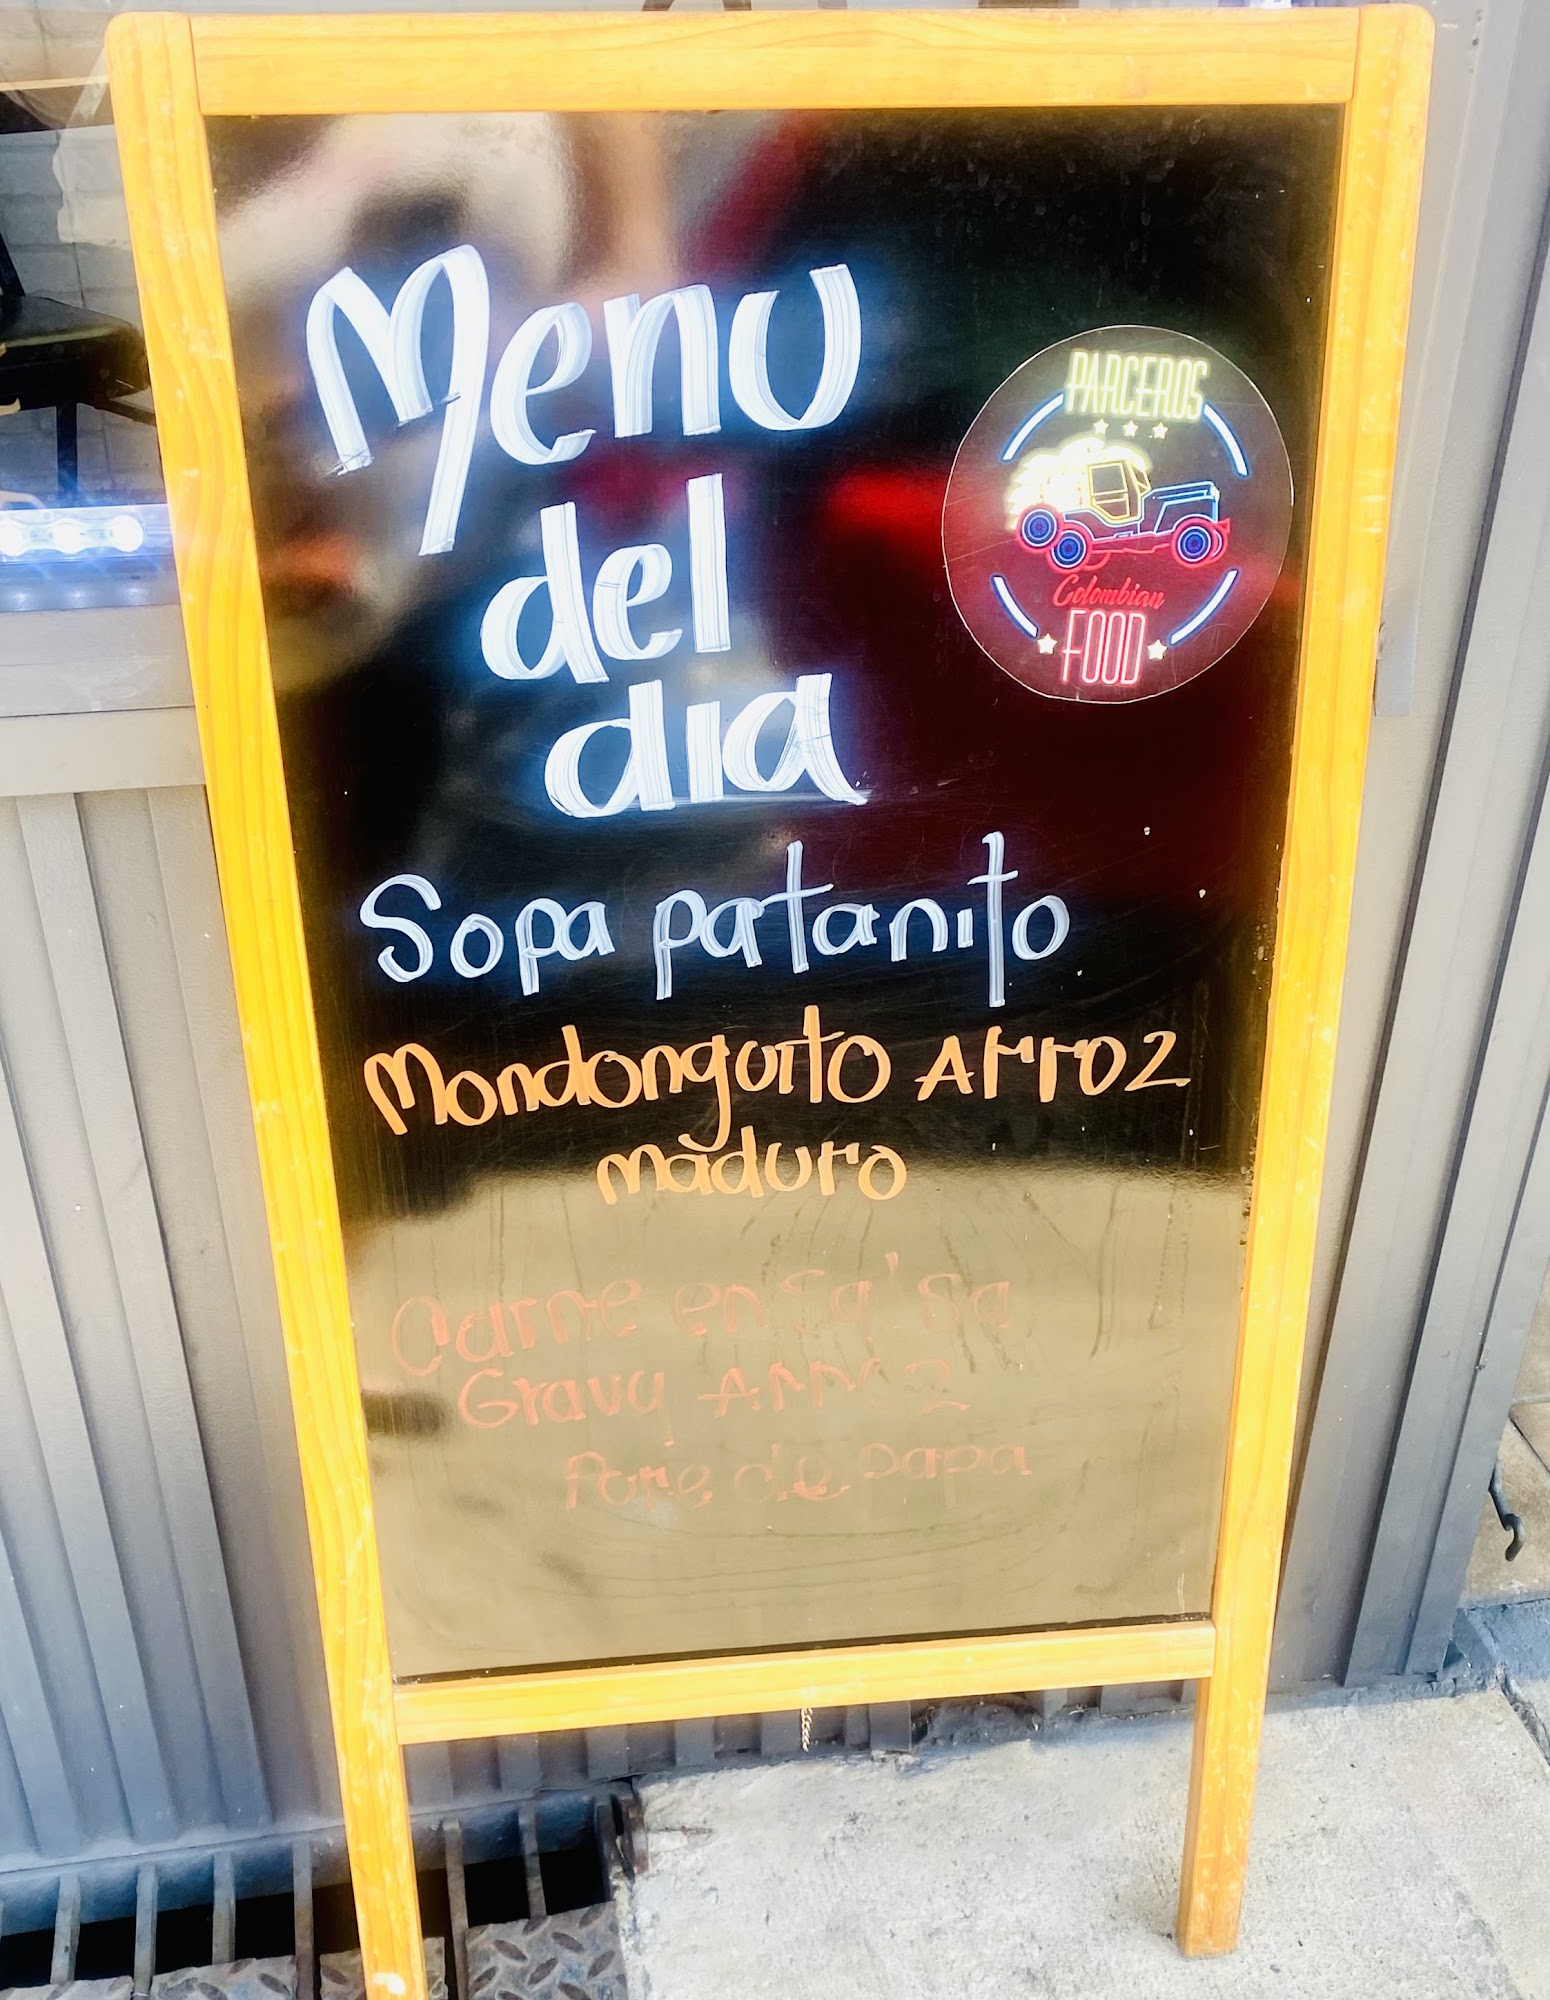 Menu
del
dia
PARCEROS
Colombian
FOOD
Sopa patanito
Mondonguito Arroz
maduro
Carne en Salsa
Gravy Arroz
Pure de papa